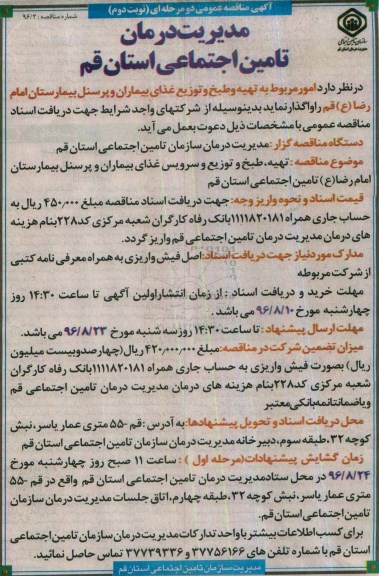 آگهی مناقصه عمومی دو مرحله ای (نوبت دوم)
شماره مناقصه: ۹۶/۳
مدیریت درمان
تامین اجتماعی استان قم
در نظر دارد امور مربوط به تهیه و طبخ و توزیع غذای بیماران و پرسنل بیمارستان امام
رضا (ع) قم را واگذار نماید بدینوسیله از شرکتهای واجد شرایط جهت دریافت اسناد
مناقصه عمومی با مشخصات ذیل دعوت بعمل می آید.
دستگاه مناقصه گزار: مدیریت درمان سازمان تامین اجتماعی استان قم
موضوع مناقصه: تهیه، طبخ و توزیع و سرویس غذای بیماران و پرسنل بیمارستان
امام رضا(ع) تامین اجتماعی استان قم
قیمت اسناد و نحوه واریز وجه: جهت دریافت اسناد مناقصه مبلغ ۴۵۰,۰۰۰ ریال به
حساب جاری همراه ۱۱۱۱۸۲۰۱۸۱ بانک رفاه کارگران شعبه مرکزی کد۲۲۸ بنام هزینه
های درمان مدیریت درمان تامین اجتماعی قم واریز گردد.
مدارک مورد نیاز جهت دریافت اسناد: اصل فیش واریزی به همراه معرفی نامه کتبی
از شرکت مربوطه
مهلت خرید و دریافت اسناد: از زمان انتشار اولین آگهی تا ساعت ۱۴:۳۰ روز
چهارشنبه مورخ ۹۶/۸/۱۰ می باشد.
مهلت ارسال پیشنهاد: تا ساعت ۱۴:۳۰ روز سه شنبه مورخ ۹۶/۸/۲۳ می باشد.
میزان تضمین شرکت در مناقصه: مبلغ ۴۲۰,۰۰۰,۰۰۰ ریال (چهارصد و بیست میلیون
ریال) بصورت فیش واریزی به حساب جاری همراه ۱۱۱۱۸۲۰۱۸۱ بانک رفاه کارگران
شعبه مرکزی کد۲۲۸ بنام هزینه های درمان مدیریت درمان تامین اجتماعی قم
و یا ضمانتنامه بانکی معتبر
محل دریافت اسناد و تحویل پیشنهادها: به آدرس: قم -۵۵ متری عمار یاسر، نبش
کوچه ۳۲، طبقه سوم، دبیرخانه مدیریت درمان سازمان تامین اجتماعی استان قم
زمان گشایش پیشنهادات (مرحله اول): ساعت ۱۱ صبح روز چهارشنبه مورخ
۹۶/۸/۲۴ در محل ستاد مدیریت درمان تامین اجتماعی استان قم واقع در قم -۵۵
متری عمار یاسر، نبش کوچه ۳۲، طبقه چهارم، اتاق جلسات مدیریت درمان سازمان
تامین اجتماعی استان قم.
برای کسب اطلاعات بیشتر با واحد تدارکات مدیریت درمان سازمان تامین اجتماعی
استان قم با شماره تلفن های ۳۷۷۵۶۱۶۶ و ۳۷۷۳۹۳۳۶ تماس حاصل نمائید.
مدیریت سازمان تامین اجتماعی استان قم